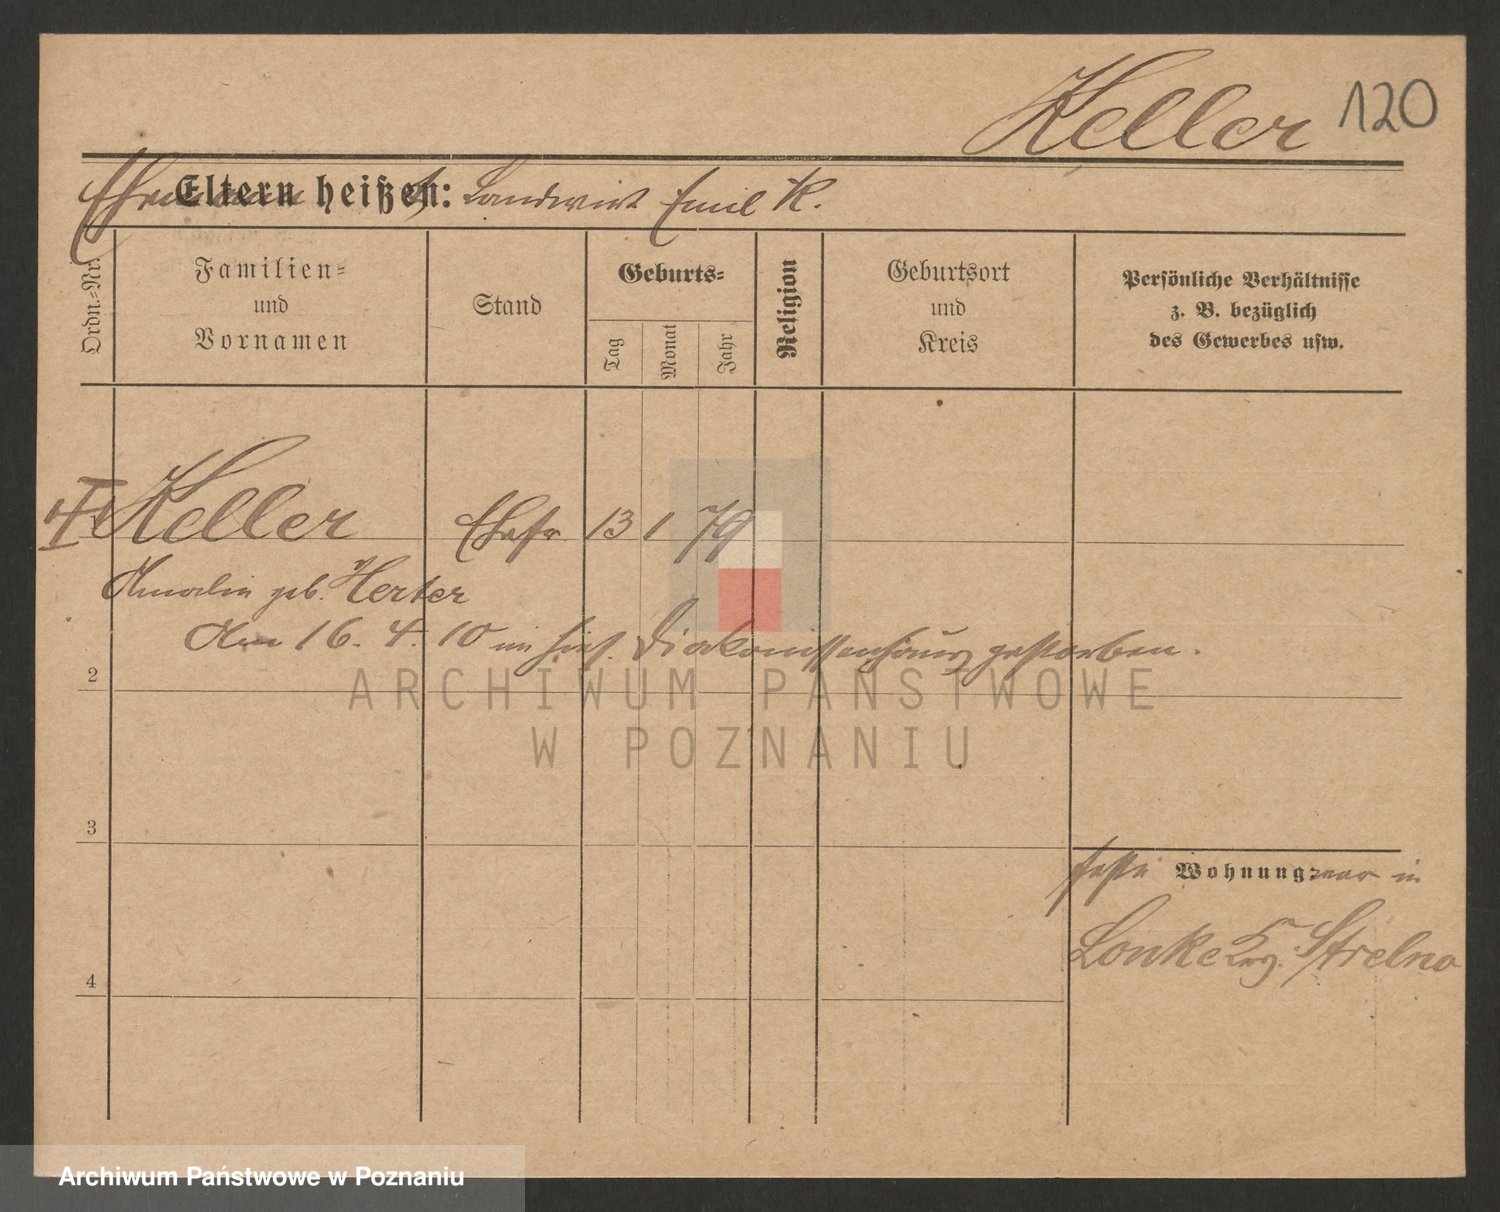 Keller 120
Ehemann Eltern heißen: Landwirt Emil K.
Ordn.=Nr.
Familien=
und
Vornamen
Stand
Geburts=
Tag
Monat
Jahr
Religion
Geburtsort
und
Kreis
Persönliche Verhältnisse
z. B. bezüglich
des Gewerbes usw.
Keller Ehefr 13 1 79
Amalie geb. Herter
Am 16. 4. 10 im hies. Diakonissenhaus gestorben.
2
ARCHIWUM PAŃSTWOWE
W POZNANIU
3
feste Wohnung war in
Lonke Krs. Strelno
4
Archiwum Państwowe w Poznaniu